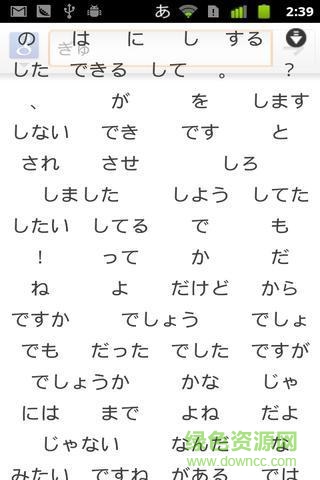 あ 2:39
の は に し する
ぎゅ
した できる して 。 ?
、 が を します
しない でき です と
され させ しろ
しました しよう してた
したい してる で も
! って か だ
ね よ だけど から
ですか でしょう でしょ
でも だった でした ですが
でしょうか かな じゃ
には まで よね だよ
じゃない なんだ な
みたい ですね がある では
绿色资源网
www.downcc.com